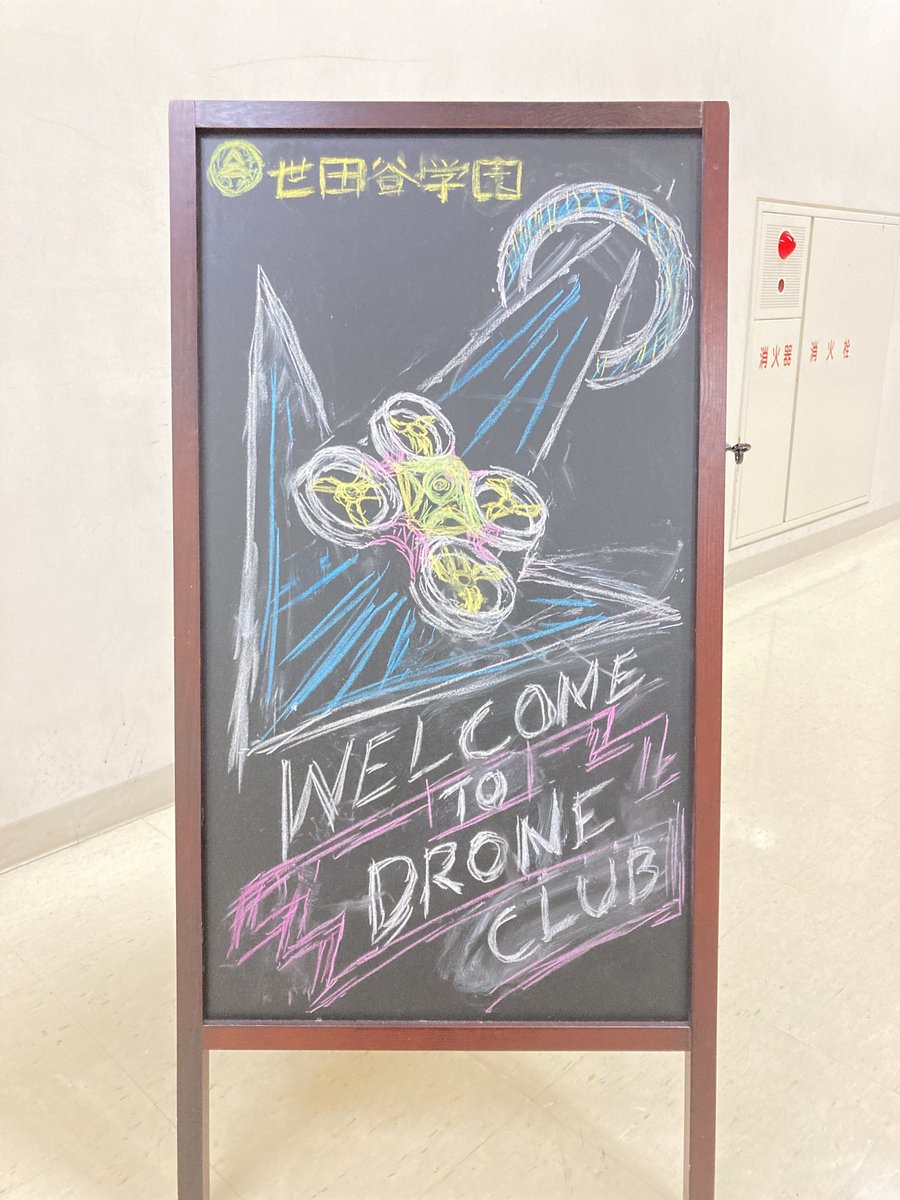 世田谷学園
WELCOME
TO
DRONE
CLUB
消火器
消火栓